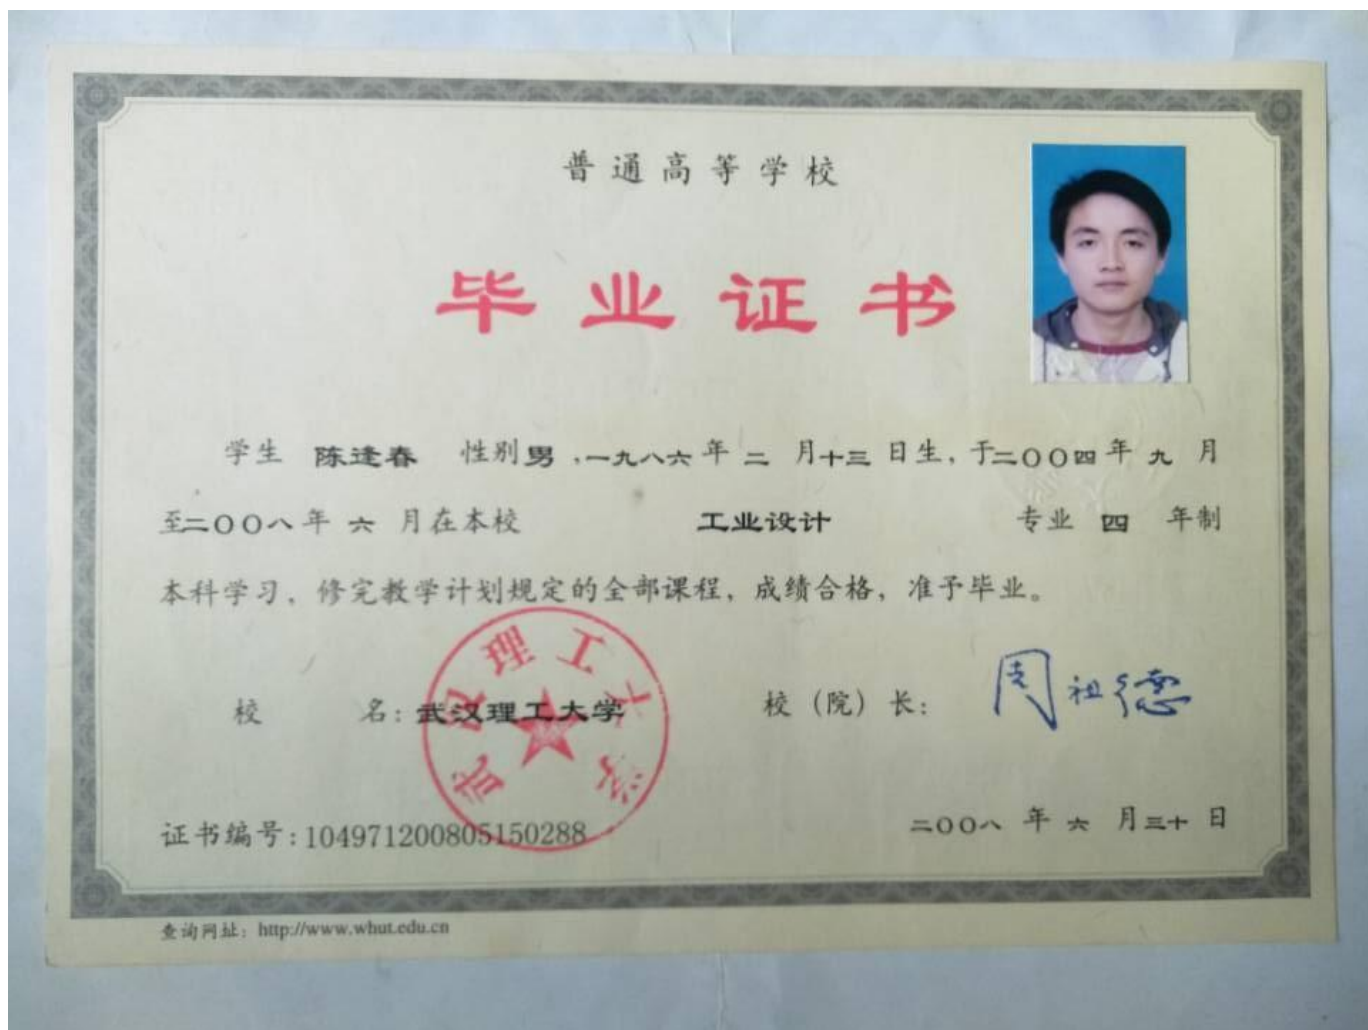 普通高等学校
毕业证书
学生 陈逢春 性别男,一九八六年二月十三日生,于二〇〇四年九月
至二〇〇八年六月在本校 工业设计 专业 四 年制
本科学习,修完教学计划规定的全部课程,成绩合格,准予毕业。
校 名:武汉理工大学 校(院)长: 周祖德
武汉理工大学
证书编号:104971200805150288 二〇〇八年六月三十日
查询网址:http://www.whut.edu.cn